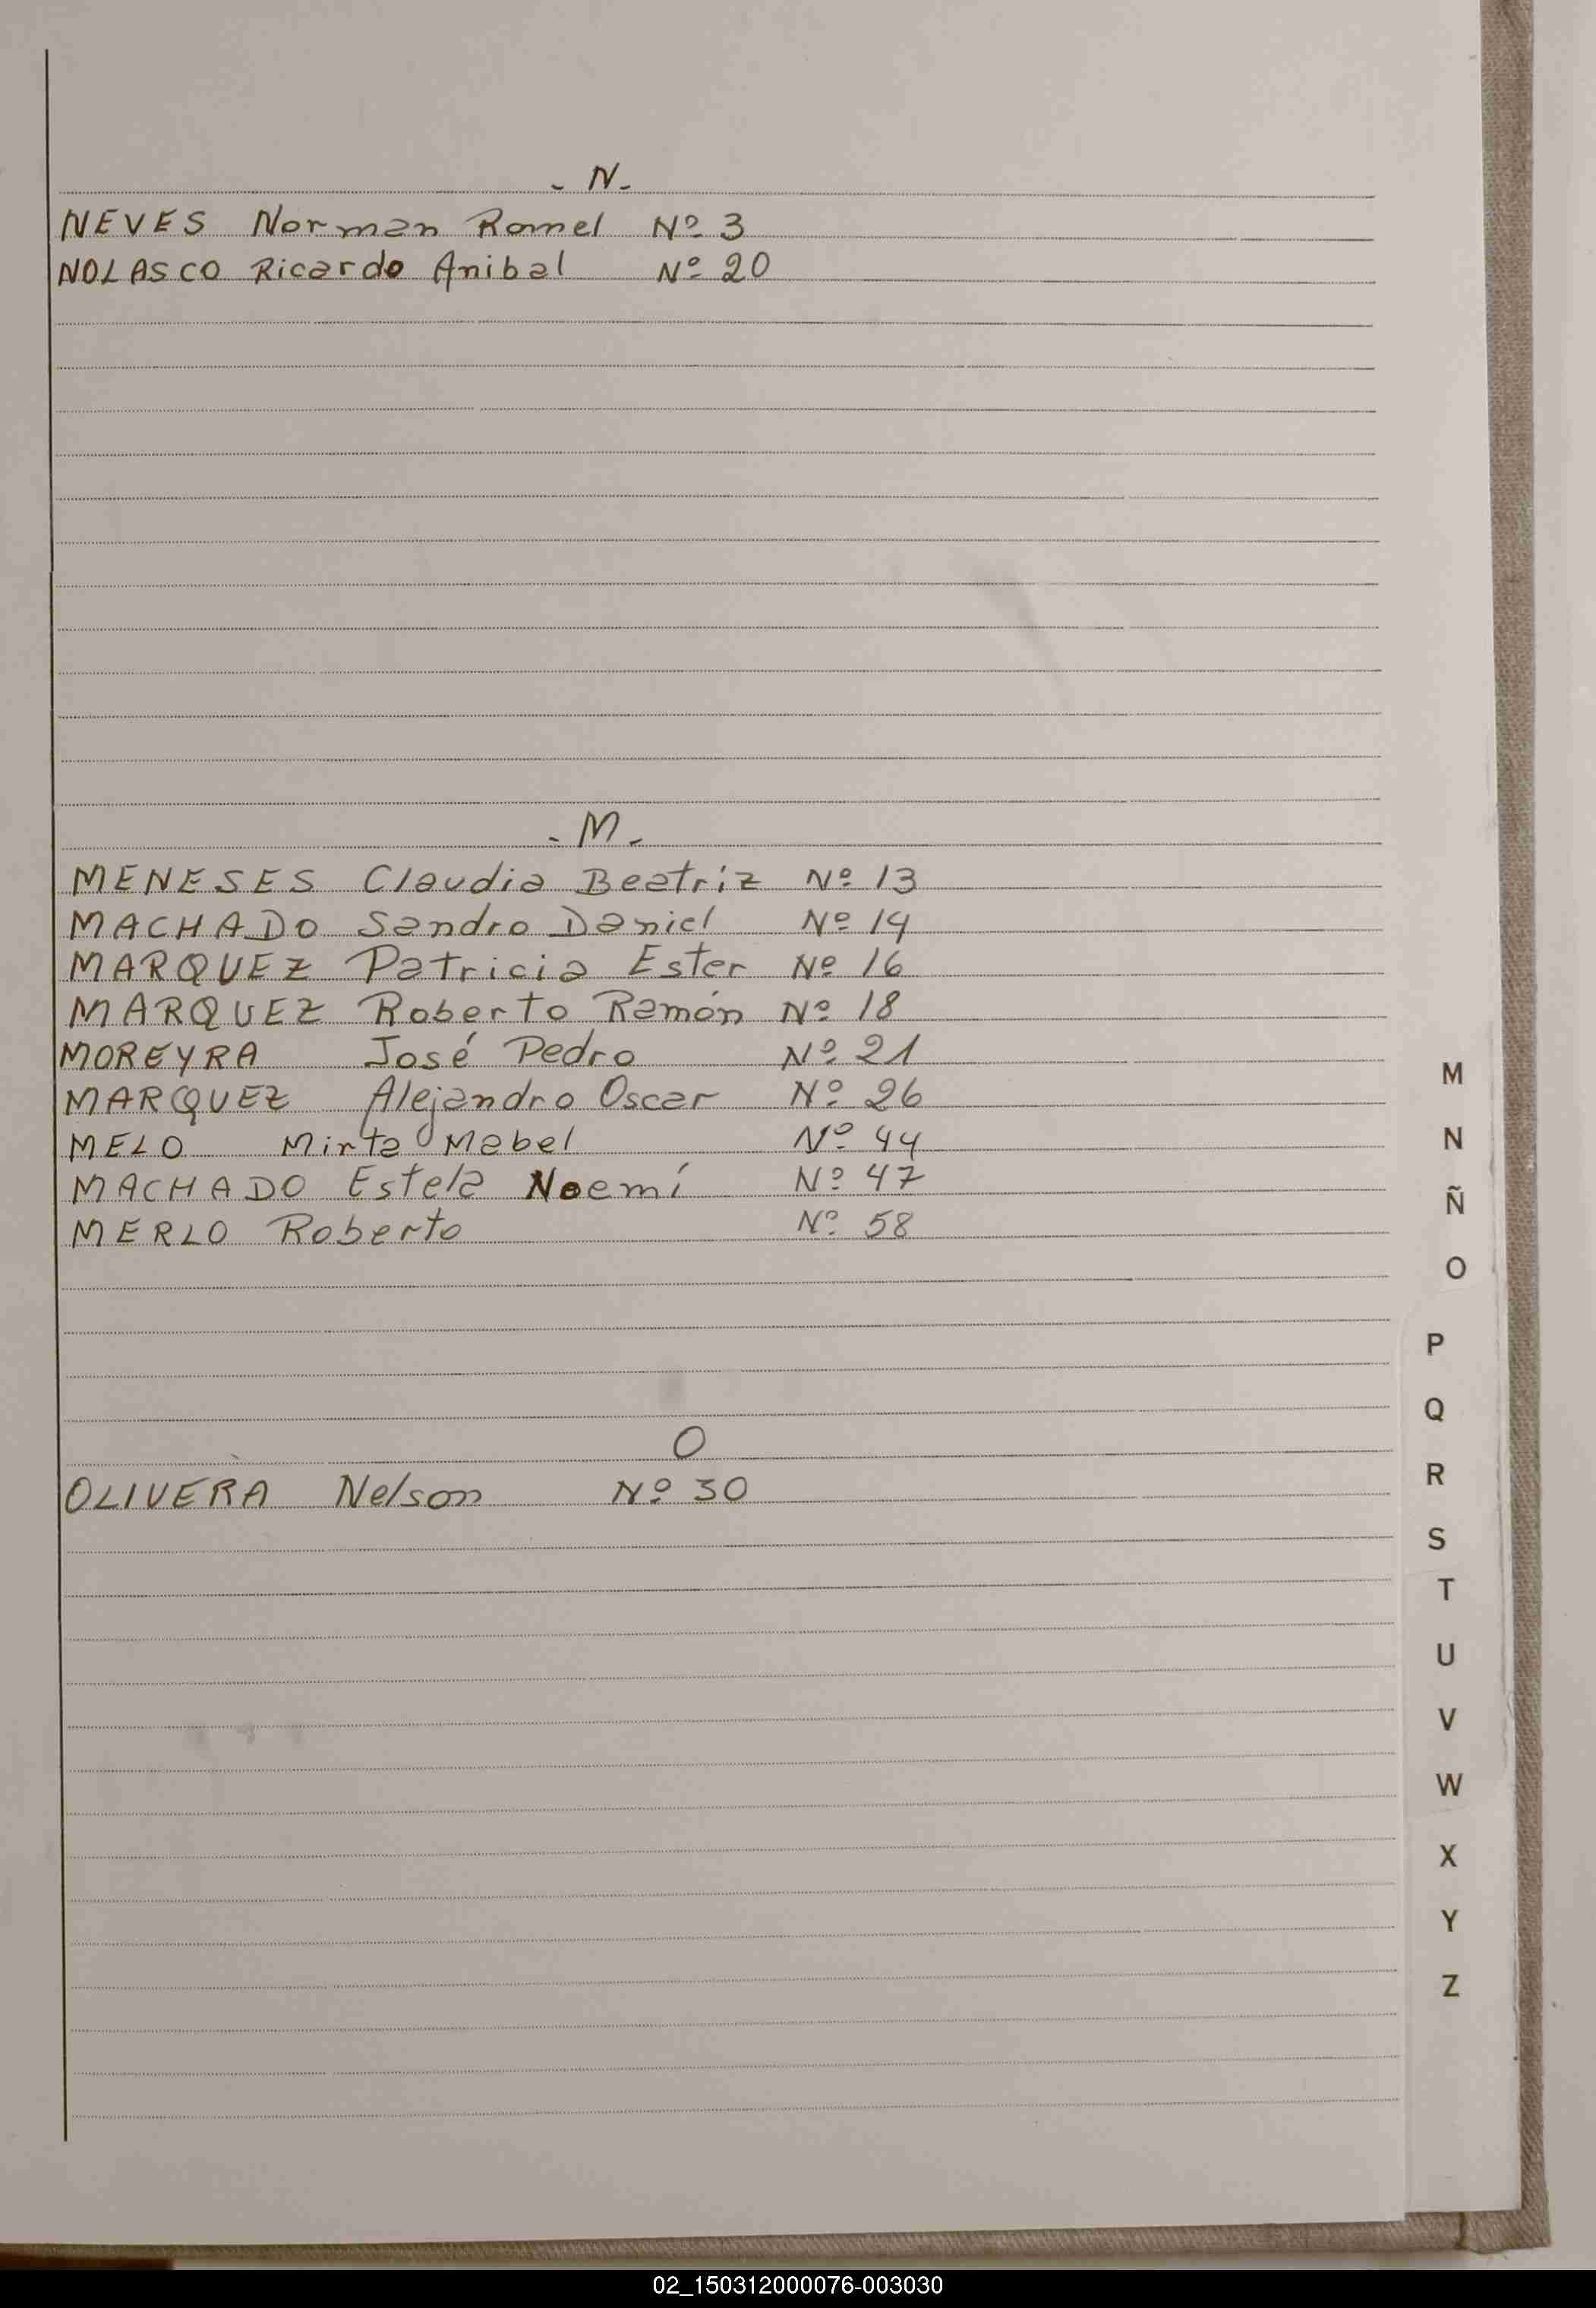 - N -
NEVES Norman Romel Nº 3
NOLASCO Ricardo Anibal Nº 20
- M -
MENESES Claudia Beatriz Nº 13
MACHADO Sandro Daniel Nº 14
MARQUEZ Patricia Ester Nº 16
MARQUEZ Roberto Ramón Nº 18
MOREYRA José Pedro Nº 21
MARQUEZ Alejandro Oscar Nº 26
MELO Mirta Mabel Nº 44
MACHADO Estela Noemí Nº 47
MERLO Roberto Nº 58
O
OLIVERA Nelson Nº 30
M
N
Ñ
O
P
Q
R
S
T
U
V
W
X
Y
Z
02_150312000076-003030